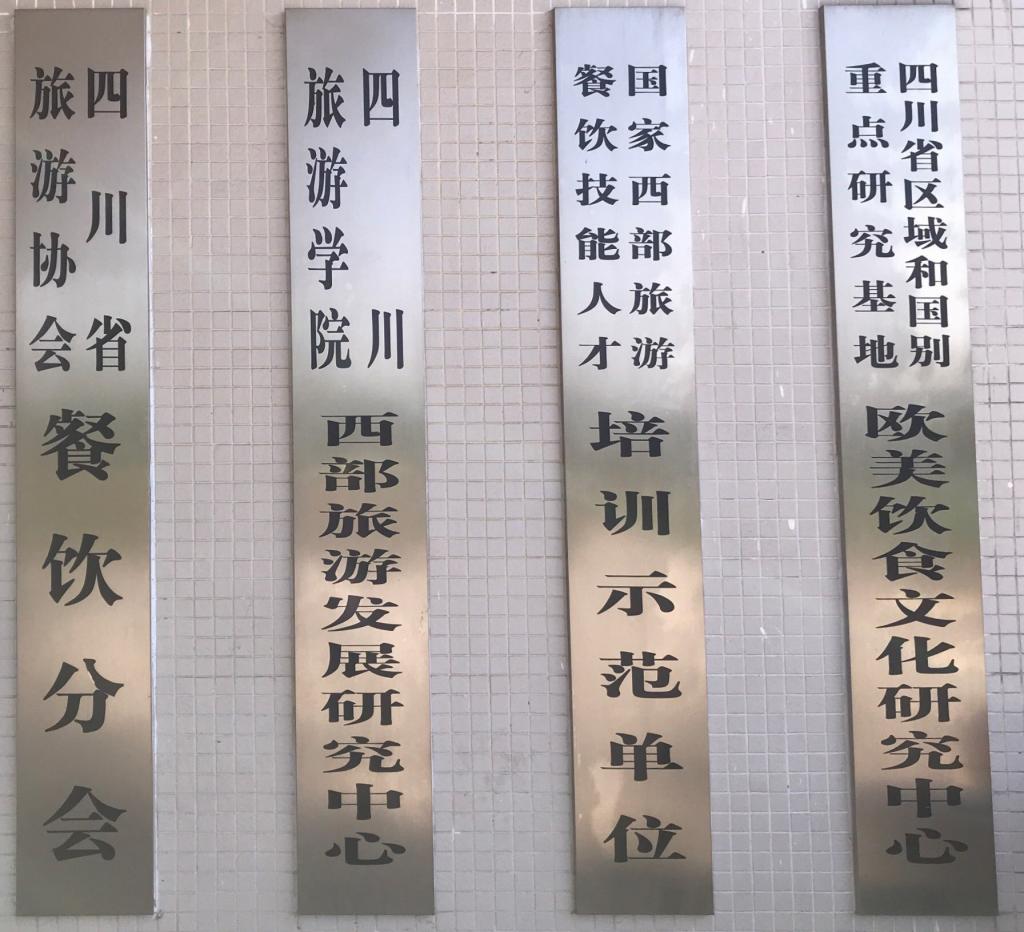 四川省
旅游协会
餐饮分会
四川
旅游学院
西部旅游发展研究中心
国家西部旅游
餐饮技能人才
培训示范单位
四川省区域和国别
重点研究基地
欧美饮食文化研究中心